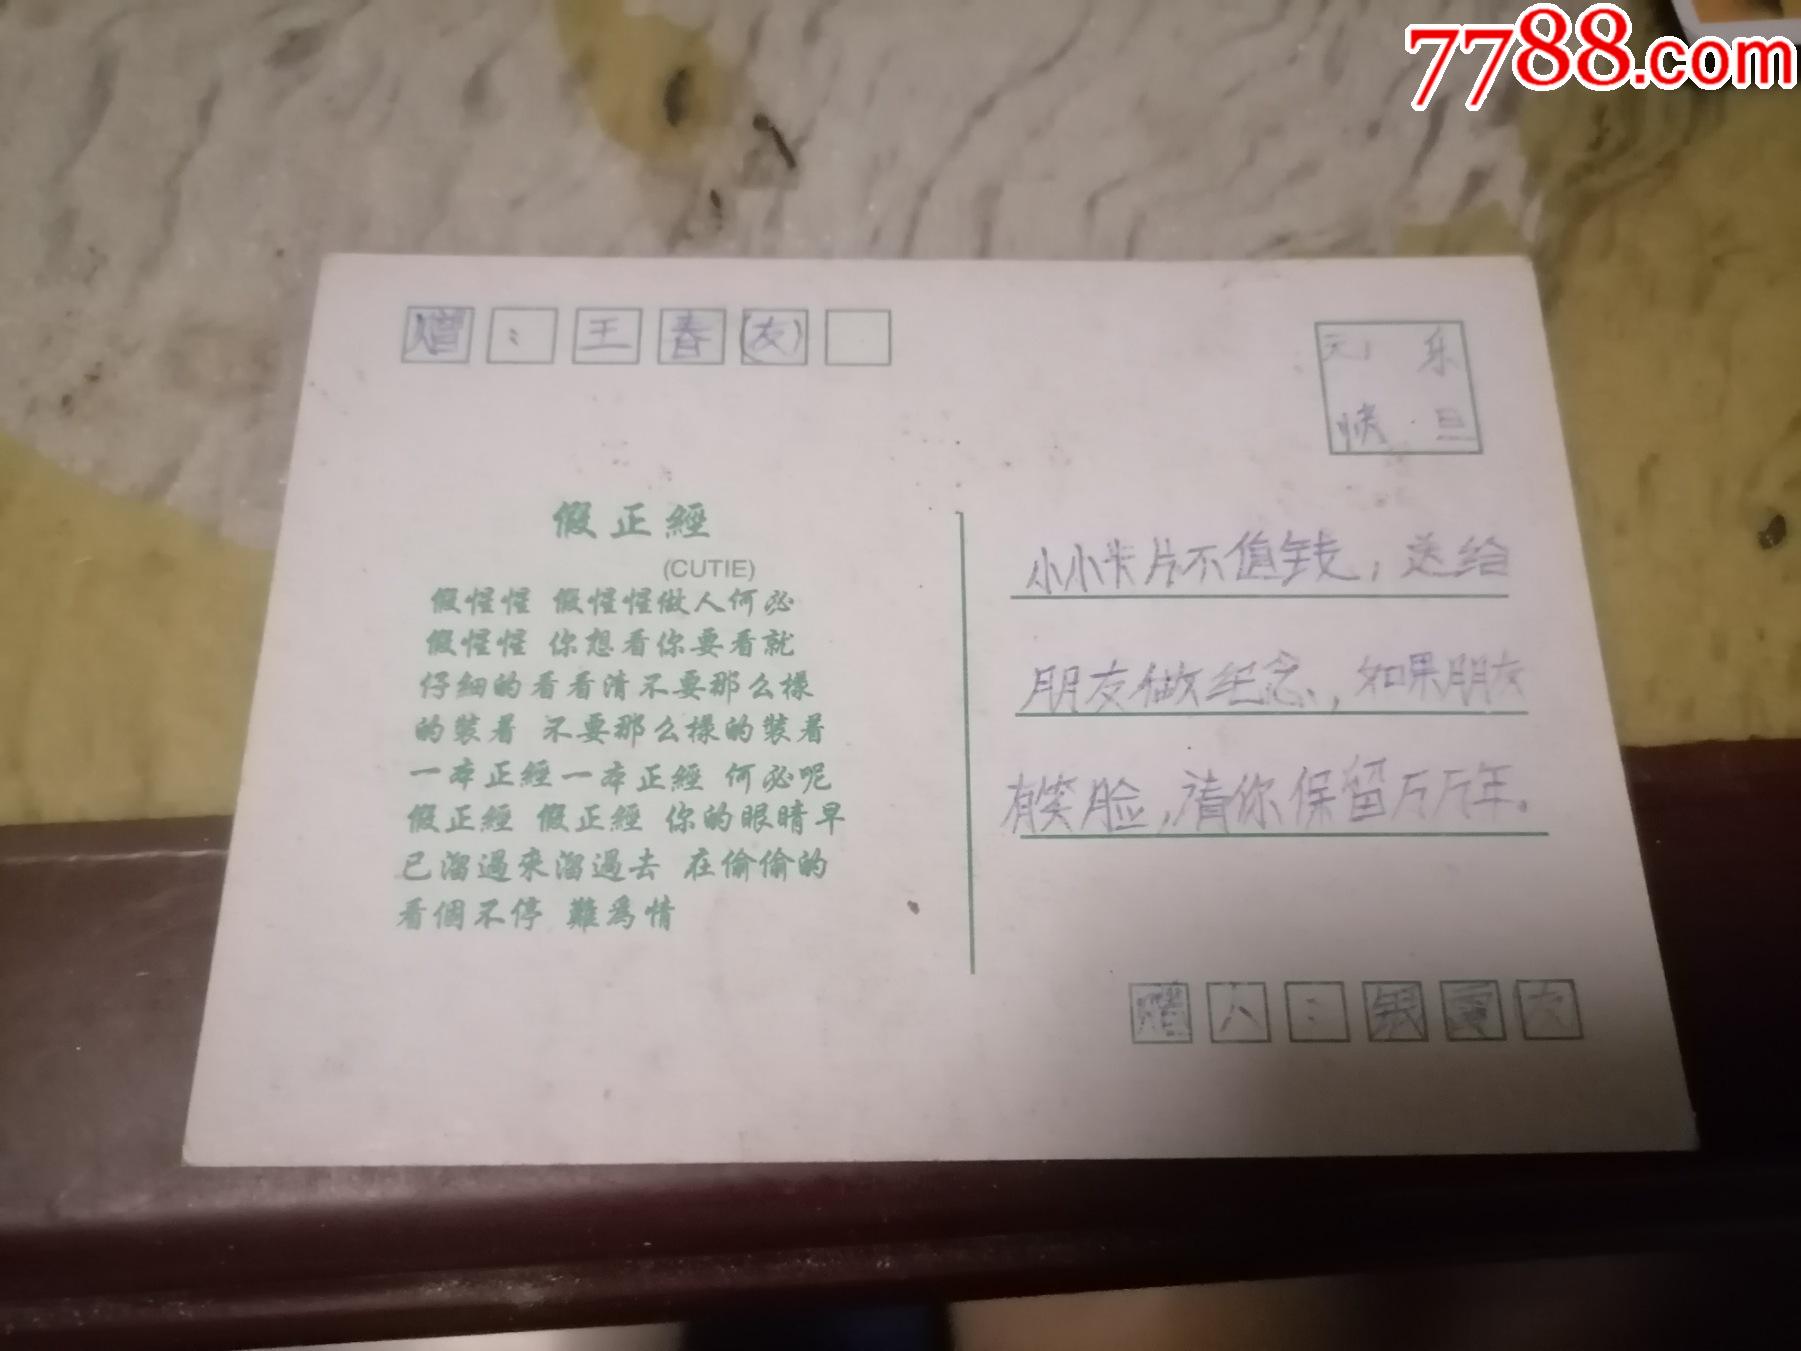 7788.com
赠:王春(友)
元 乐
快 旦
假正經
(CUTIE)
假惺惺 假惺惺做人何必
假惺惺 你想看你要看就
仔細的看看清不要那么樣
的裝着 不要那么樣的裝着
一本正經一本正經 何必呢
假正經 假正經 你的眼睛早
已溜過來溜過去 在偷偷的
看個不停 難爲情
小小卡片不值钱,送给
朋友做纪念,如果朋友
有笑脸,请你保留万万年。
赠人: